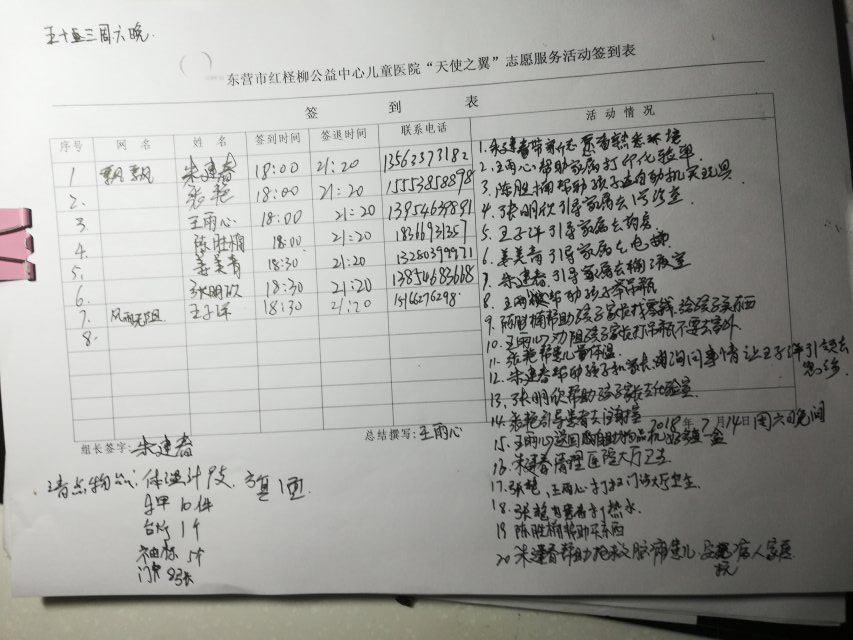 五十五三周六晚.
( ) 东营市红柽柳公益中心儿童医院“天使之翼”志愿服务活动签到表
签 到 表
活 动 情 况
序号 网 名 姓 名 签到时间 签退时间 联系电话
1 飘飘 朱建春 18:00 21:20 13563373182
2. 张艳 18:00 21:20 15553858898
3. 王雨心 18:00 21:20 13954639891
4. 陈胜楠 18:00 21:20
5. 姜美青 18:30 21:20 13280399971
6. 张明欣 18:30 21:20 13854683668
7. 风雨无阻 王子洋 18:30 21:20 15166276298
8.
1. 朱建春带新志愿者熟悉环境
2. 王雨心帮助家属打印化验单
3. 陈胜楠帮助孩子在自动机买玩具
4. 张明欣引导家属去
5. 王子洋引导家属去药房
6. 姜美青引导家属乘电梯
7. 朱建春引导家属去
8. 王雨心帮助孩子举吊瓶
9. 陈胜楠帮助孩子家长找零钱给孩子买东西
10. 王雨心劝阻孩子家长打吊瓶不要去室外
11. 张艳帮患儿量体温
12. 朱建春帮助孩子和家长询问事情让王子洋引领去
13. 张明欣帮助孩子家长去化验室
14. 张艳引导患者去注射室
15. 王雨心送回
16. 朱建春清理医院大厅卫生
17. 张艳、王雨心打扫门诊大厅卫生
18. 张艳为患者打热水
19 陈胜楠帮助买东西
20 朱建春帮助抢救 患儿, 病人家属
2018年7月14日周六晚间
组长签字: 朱建春
总结撰写: 王雨心
清点物品: 体温计9支,
马甲10件
台灯1个